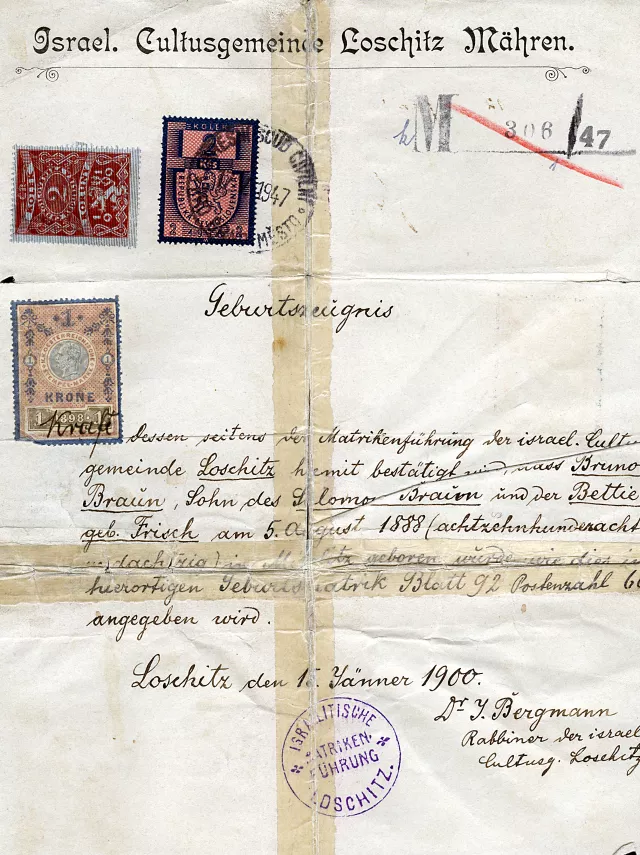 Israel. Cultusgemeinde Loschitz Mähren.
M 306/47
KOLEK
1947
MĚSTO
Geburtszeugnis
1
KRONE
1 1898 1
Kraft dessen seitens der Matrikenführung der israel. Cultu
gemeinde Loschitz hiemit bestätigt wird, dass Bruno
Braun, Sohn des Salomon Braun und der Bettie
geb. Frisch am 5. August 1888 (achtzehnhundertacht
geboren wurde wie dies
hierortigen Geburtsmatrik Blatt 92 Postenzahl
angegeben wird.
Loschitz den Jänner 1900.
Dr J. Bergmann
Rabbiner der israel
Cultusg. Loschitz
ISRAELITISCHE
MATRIKEN-
FÜHRUNG
LOSCHITZ.